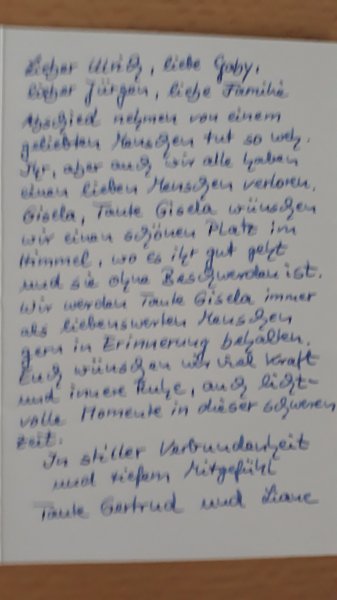 Lieber Ulrich, liebe Gaby,
lieber Jürgen, liebe Familie
Abschied nehmen von einem
geliebten Menschen tut so weh.
Ihr, aber auch wir alle haben
einen lieben Menschen verloren.
Gisela, Tante Gisela wünschen
wir einen schönen Platz im
Himmel, wo es ihr gut geht
und sie ohne Beschwerden ist.
Wir werden Tante Gisela immer
als liebenswerten Menschen
gern in Erinnerung behalten.
Euch wünschen wir viel Kraft
und innere Ruhe, auch licht-
volle Momente in dieser schweren
Zeit.
In stiller Verbundenheit
und tiefem Mitgefühl
Tante Gertrud und Liane